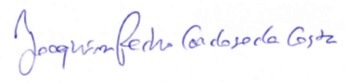 Joaquim Pedro Cardoso da Costa